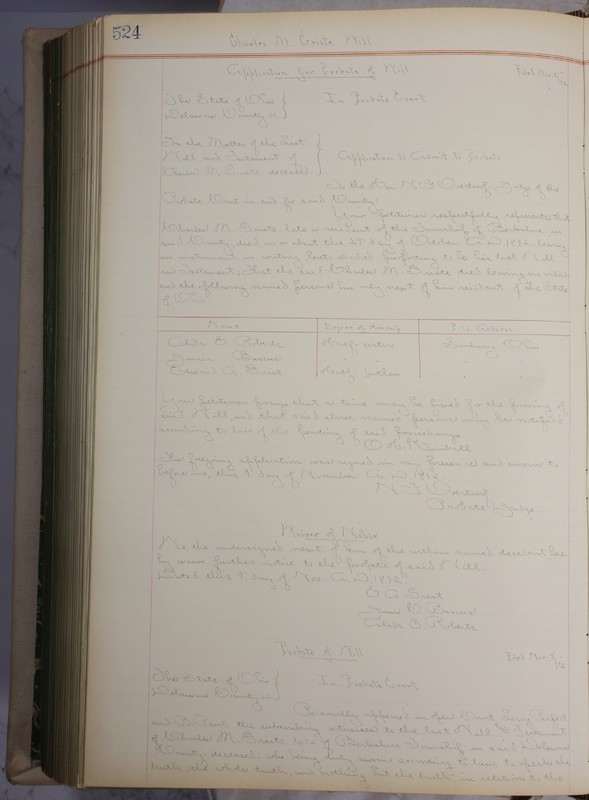 524
Charles M. Griste Will
Application for Probate of Will
Filed Nov. 9
The State of Ohio
Delaware County ss.
In Probate Court
In the Matter of the Last
Will and Testament of
Charles M. Griste deceased
Application to Admit to Probate
To the Hon. Judge of the
Probate Court in and for said County:
Your Petitioner respectfully represents that
Charles M. Griste late a resident of the Township of Berkshire in
said County, died on or about the 29 day of October A.D. 1892 leaving
an instrument in writing, hereto attached purporting to be his last Will
and Testament; that the said Charles M. Griste died leaving no widow
and the following named persons his only next of kin resident of the State
of Ohio
Name
Degree of Kinship
P.O. Address
O. Roberts
Half sister
Sunbury Ohio
Edward A. Griste
Half brother
Your petitioner prays that a time may be fixed for the proving of
said Will, and that said above named persons may be notified
according to law of the pending of said proceedings
O. H. Kimball
The foregoing application was signed in my presence and sworn to
before me, this 9 day of November A.D. 1892.
Probate Judge
Waiver of Notice
We the undersigned next of kin of the within named decedent here-
by waive further notice to the probate of said Will.
Dated this 9 day of Nov. A.D. 1892.
E. A. Griste
O. Roberts
Probate of Will
Filed Nov. 9
The State of Ohio
Delaware County ss.
In Probate Court
Personally appeared in open Court,
and the subscribing witnesses to the last Will & Testament
of Charles M. Griste late of Berkshire Township in said Delaware
County deceased; who being duly sworn according to law, to speak the
truth, the whole truth, and nothing but the truth, in relation to the